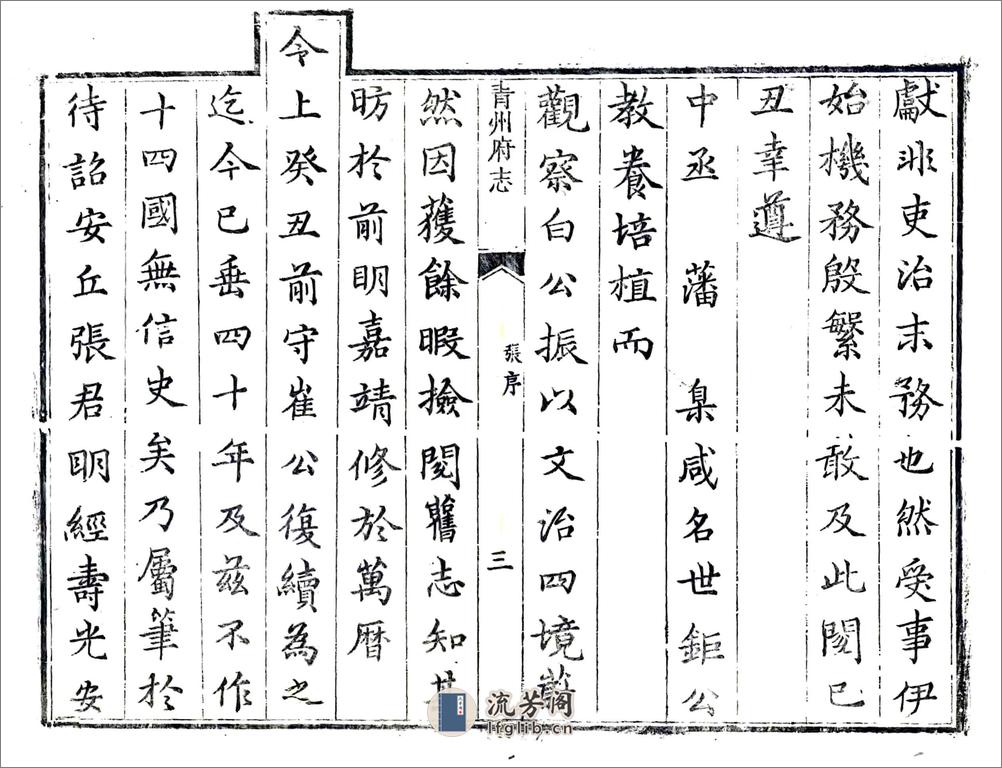 獻非吏治末務也然受事伊
始機務殷繁未敢及此閱己
丑幸遵
中丞 藩 臬咸名世鉅公
教養培植而
觀察白公振以文治四境
青州府志
張序
三
然因獲餘暇撿閱舊志知其
昉於前明嘉靖修於萬曆
今上癸丑前守崔公復續為之
迄今已垂四十年及茲不作
十四國無信史矣乃屬筆於
待詔安丘張君明經壽光安
流芳阁
lfglib.cn